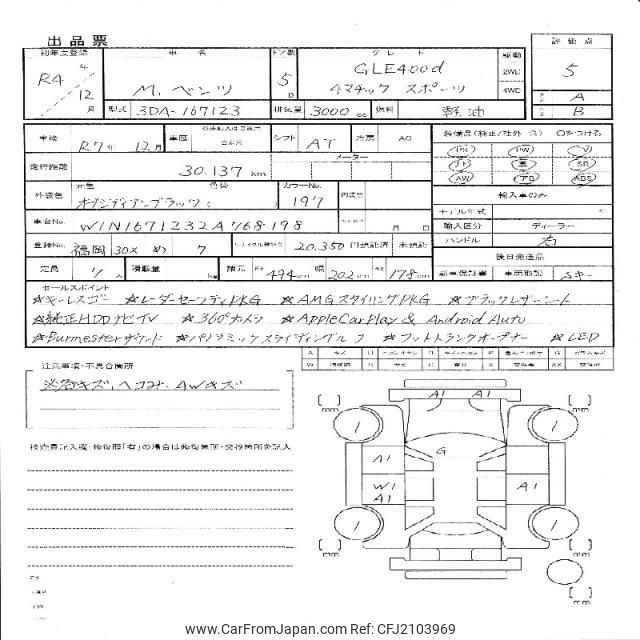 出品票
初年度登録 車名 ドア数 グレード 駆動 評価点
R4年 12月 M.ベンツ 5D GLE400d 4マチック スポーツ 2WD 4WD 5
A
B
型式 3DA-167123 排気量 3000cc 燃料 軽油
車検 R7年 12月 車歴 シフト AT 冷房 AC 装備品(純正/社外 含) ○をつける
走行距離 30.137km メーター
PS PW
SR
AW ABS
外装色 元色 オブシディアンブラック( ) 色替 カラーNo. 197 内装色
輸入車のみ
モデル年式
車台No. W1N1671232A768198 月 日 輸入区分 ディーラー
登録No. 福岡 30X め 7 リサイクル預託金 20.350 円預託済 未預託 ハンドル 右
後日発送品
定員 7人 積載量 kg 諸元 長さ 494cm 幅 202cm 高さ 178cm 新車保証書 車両取説 Sキー
セールスポイント
☆キーレスゴー ☆レーダーセーフティPKG ☆AMGスタイリングPKG ☆ブラックレザーシート
☆純正HDDナビTV ☆360°カメラ ☆AppleCarPlay & Android Auto
☆Burmesterサウンド ☆パノラミックスライディングルーフ ☆フットトランクオープナー ☆LED
注意事項・不具合箇所
A1 A1
1 1
G
A1
W1
A1
A1
1 1
mm mm
mm mm
www.CarFromJapan.com Ref: CFJ2103969